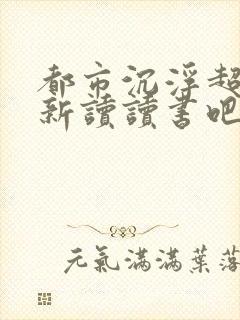 都市沉浮超
新讀讀書吧
元氣滿滿葉落